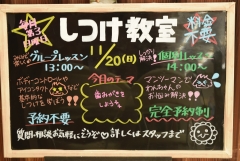 毎月第3日曜日
しつけ教室
料金不要
11/20(日)
グループレッスン
13:00〜
個別レッスン
14:00〜
今日のテーマ
ボディーコントロールや
アイコンタクトなど
基本的な
しつけを学ぼう!!
マンツーマンで
お悩み解決!!
予約不要
完全予約制
質問・相談お気軽にどうぞ♡詳しくはスタッフまで